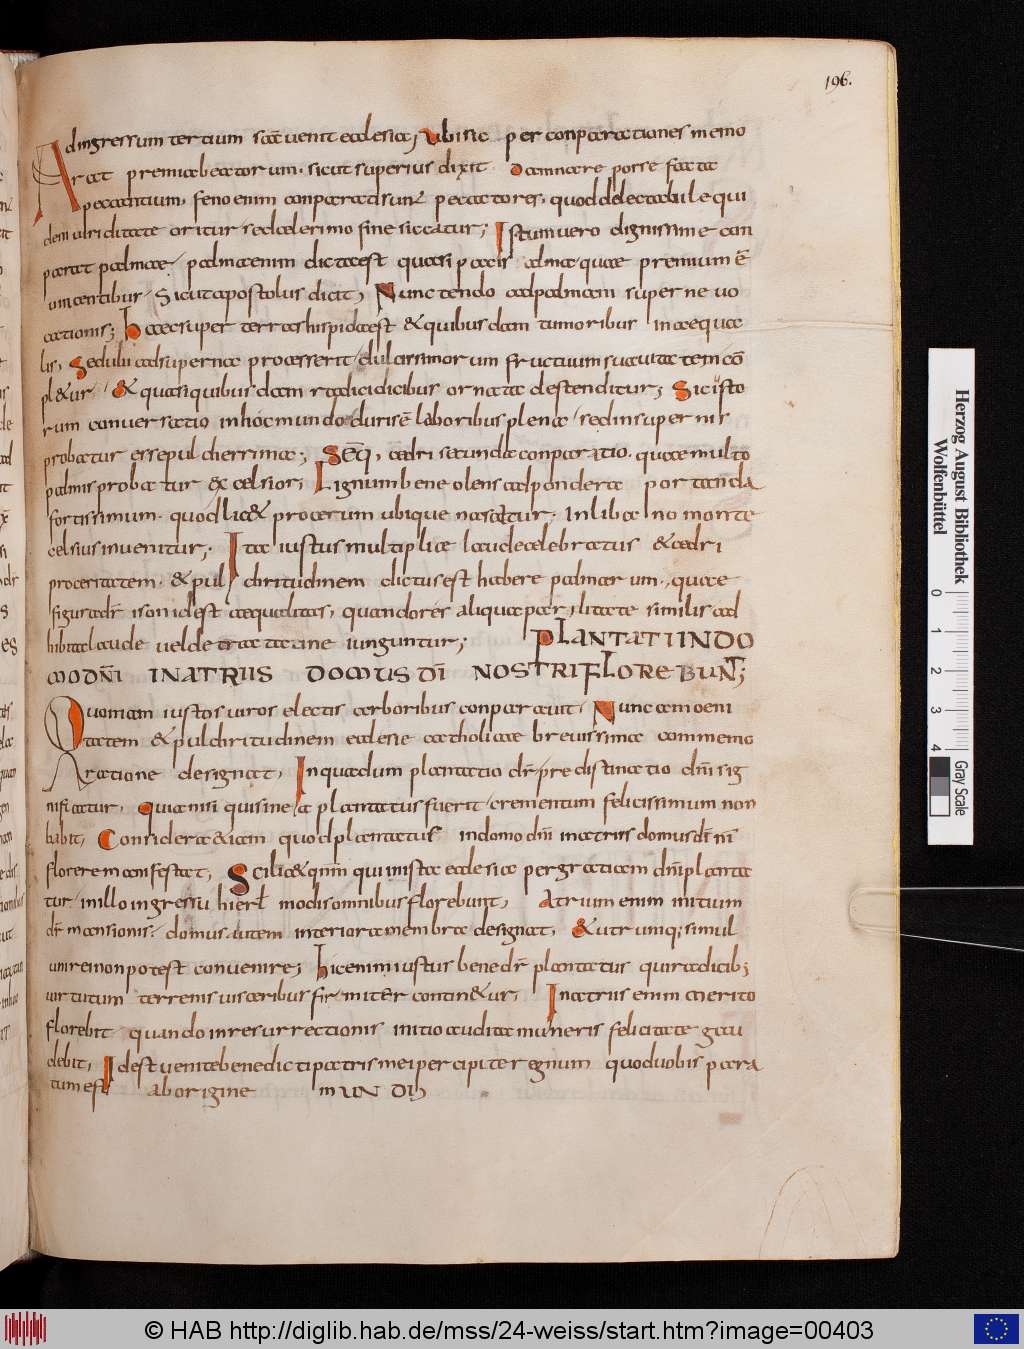 196.
Ad ingressum tertium scae uenit ecclesiae, Ubi sic per conparationes memo
Rat premia beatorum. sicut superius dixit Damnare posse facta
peccantium. feno enim conparati sunt peccatores, quod delectabile qui
dem uiriditate oritur sed celerrimo fine siccatur; Istum uero dignissime con
parat palmae. palma enim dicta est quasi pacis alma quae premium ē
uincentibus. Sicut apostolus dicit, Nunc tendo ad palmam superne uo
cationis; haec super terras hispida est & quibusdam tumoribus inaequa
lis. Sed ubi ad superna processerit dulcissimorum fructuum suauitate cō
pl&ur. & quasi quibusdam radici dicibus ornata destenditur; Sic isto
rum conuersatio in hoc mundo duris ē laboribus plena sed in supernis
probatur esse pulcherrimae; Seq, cedri secunda conparatio. quae multo
palmis probatur excelsior; Lignum bene olens ad pondera portanda
fortissimum. quod lic& procerum ubique nascatur. In libano monte
celsius inuenitur; Ita iustus multiplicae laude celebratus & cedri
proceritatem. & pulchritudinem dictus est habere palmarum., quae
figura dr̄ ison id est aequalitas, quando res aliquae par ilitate similis ad
hibita laude uel detractatione iunguntur; PLANTATI IN DO
MO DN̄I IN ATRIIS DOMUS DĪ NOSTRI FLOREBUNT;
Quoniam iustos uiros electis arboribus conparauit. Nunc amoeni
tatem & pulchritudinem ecclesie catholicae breuissima commemo
Ratione designat, In quadum plantatio dr̄ predistinatio dn̄i sig
nificatur, Quia nisi quis in ea plantatus fuerit crementum felicissimum non
habit, Considera etiam quod plantatus in domo dn̄i in atriis domus dī nr̄i
florere manifestat, Scilic& qnm qui in ista ecclesia per gratiam dn̄i planta
tur in illo ingressu hierl modis omnibus florebunt, Atrium enim initium
dr̄ mansionis. domus autem interiora membra designat, & utrumq; simul
uni rei non potest conuenire; hic enim iustus bene dr̄ plantatus qui radicib;
uirtutum terrenis uisceribus firmiter contin&ur, In atriis enim merito
florebit quando in resurrectionis initio audita muneris felicitate gau
debit, Id est uenite benedicti patris mei percipite regnum quod uobis para
tum est ab origine MUNDI;
Herzog August Bibliothek
Wolfenbüttel
0 1 2 3 4
Gray Scale
© HAB http://diglib.hab.de/mss/24-weiss/start.htm?image=00403